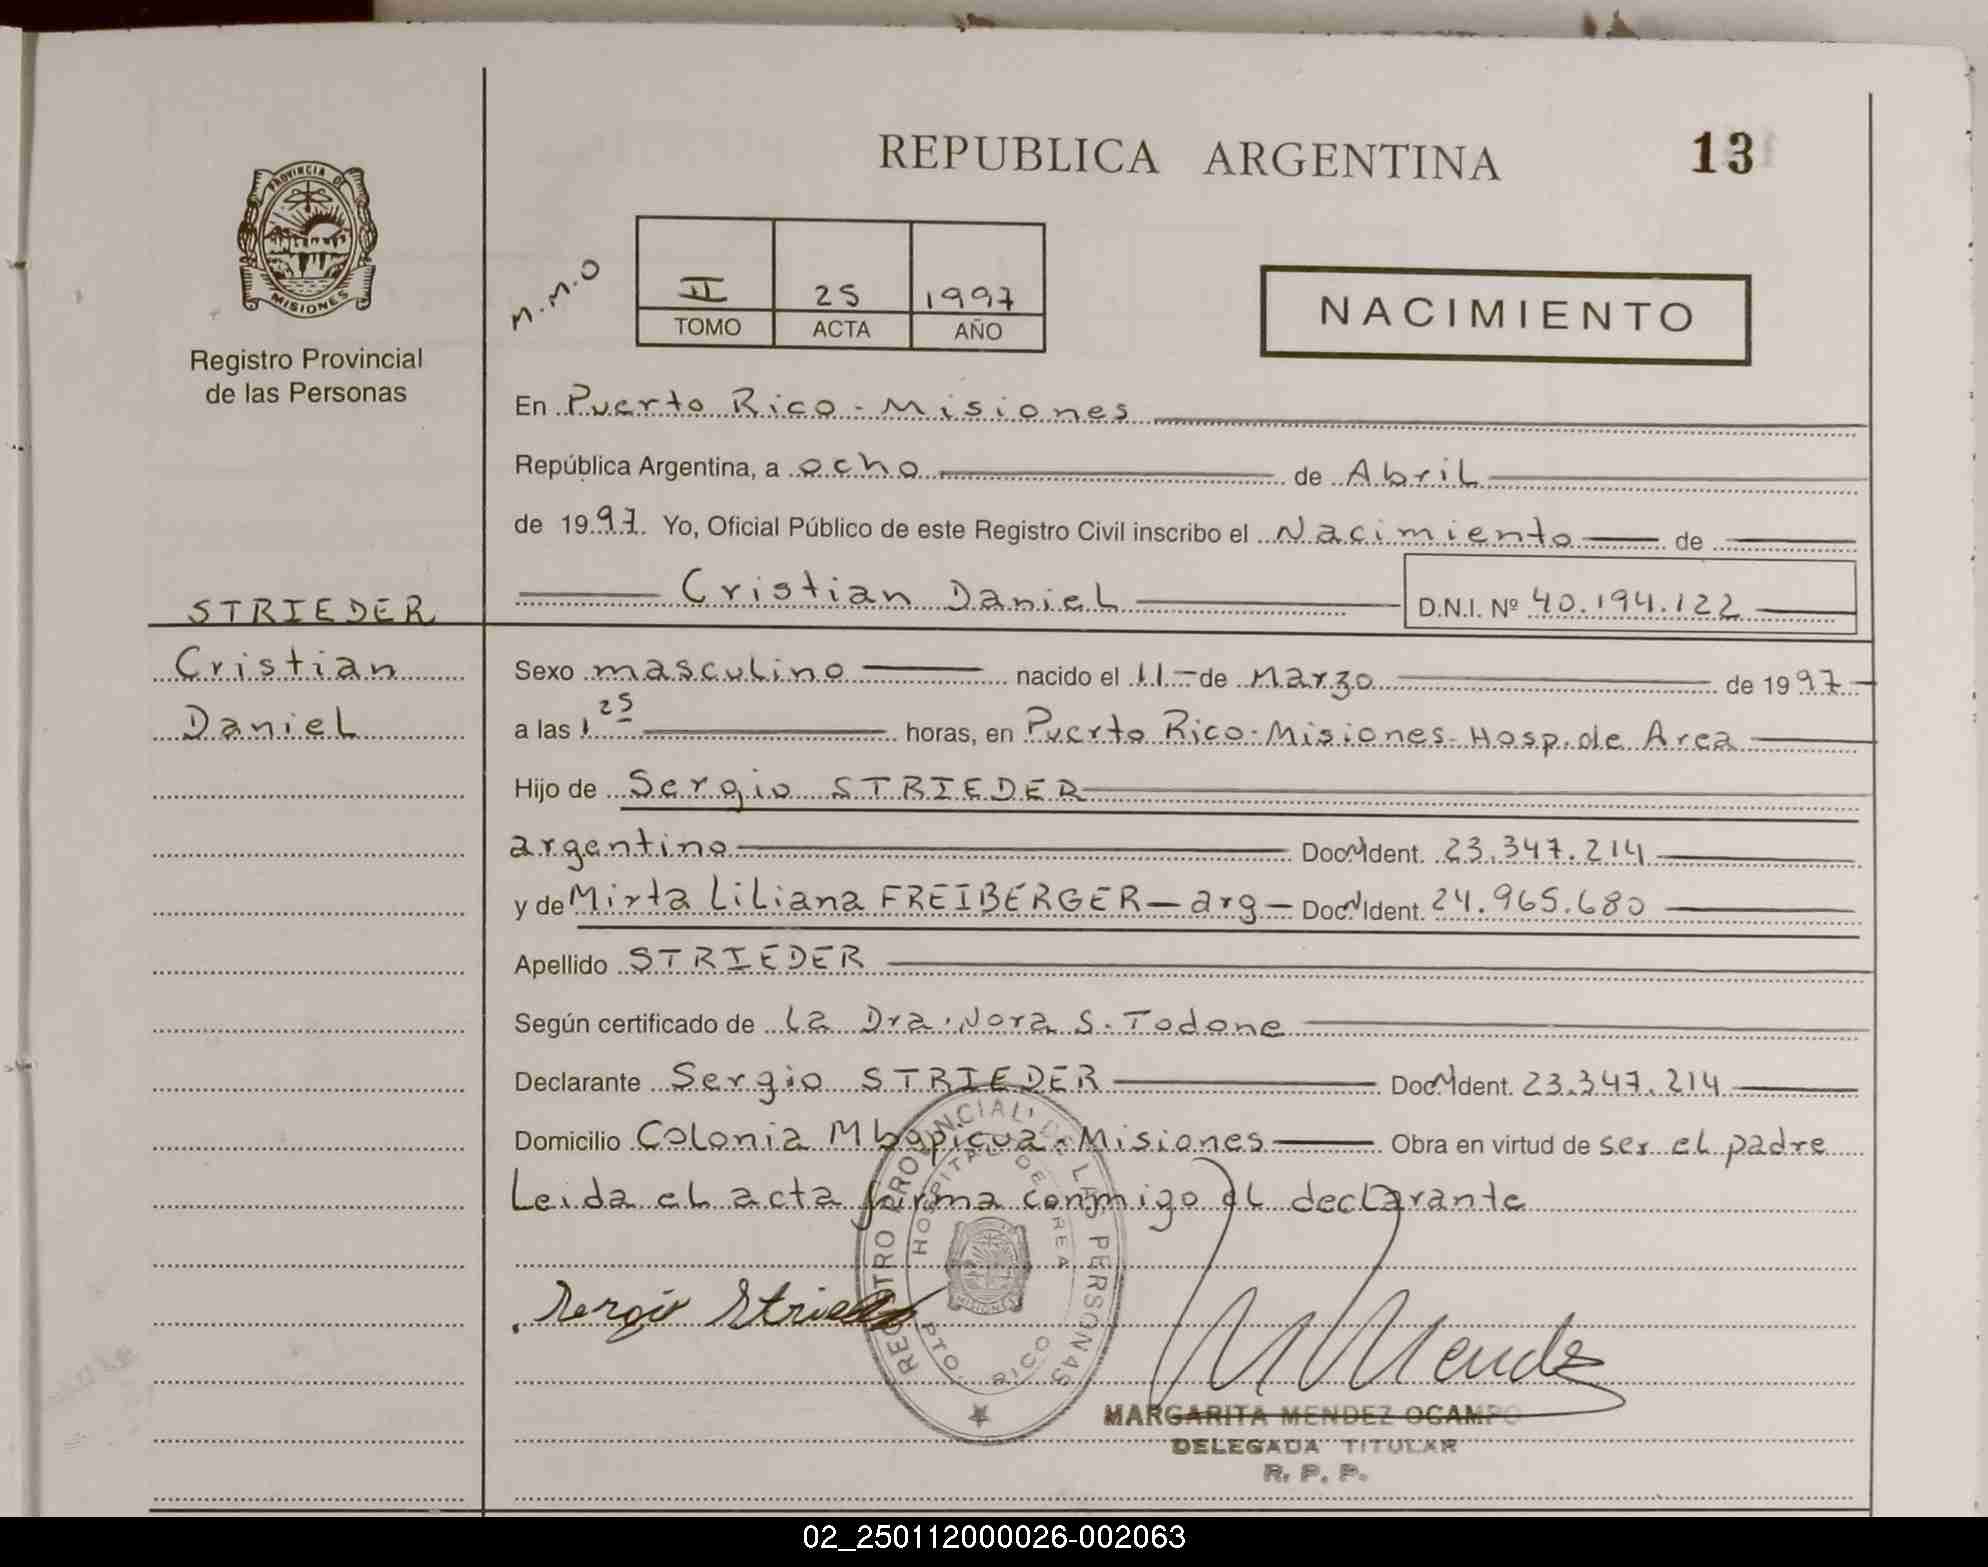 REPUBLICA ARGENTINA
13
PROVINCIA DE
MISIONES
Registro Provincial
de las Personas
M.M.O
II 25 1997
TOMO ACTA AÑO
NACIMIENTO
En Puerto Rico - Misiones
República Argentina, a ocho de Abril
de 1997. Yo, Oficial Público de este Registro Civil inscribo el Nacimiento de
Cristian Daniel D.N.I. Nº 40.194.122
STRIEDER
Cristian
Daniel
Sexo masculino nacido el 11 - de Marzo de 1997
a las 1 25 horas, en Puerto Rico - Misiones - Hosp. de Area
Hijo de Sergio STRIEDER
argentino Doc. Ident. 23.347.214
y de Mirta Liliana FREIBERGER - arg - Doc. Ident. 24.965.680
Apellido STRIEDER
Según certificado de la Dra. Nora S. Todone
Declarante Sergio STRIEDER Doc. Ident. 23.347.214
Domicilio Colonia Mbopicua - Misiones Obra en virtud de ser el padre
Leida el acta firma conmigo el declarante
REGISTRO PROVINCIAL DE LAS PERSONAS
HOSPITAL DE AREA
MISIONES
PTO. RICO
Sergio Strieder
M Mendez
MARGARITA MENDEZ OCAMPO
DELEGADA TITULAR
R. P. P.
02_250112000026-002063